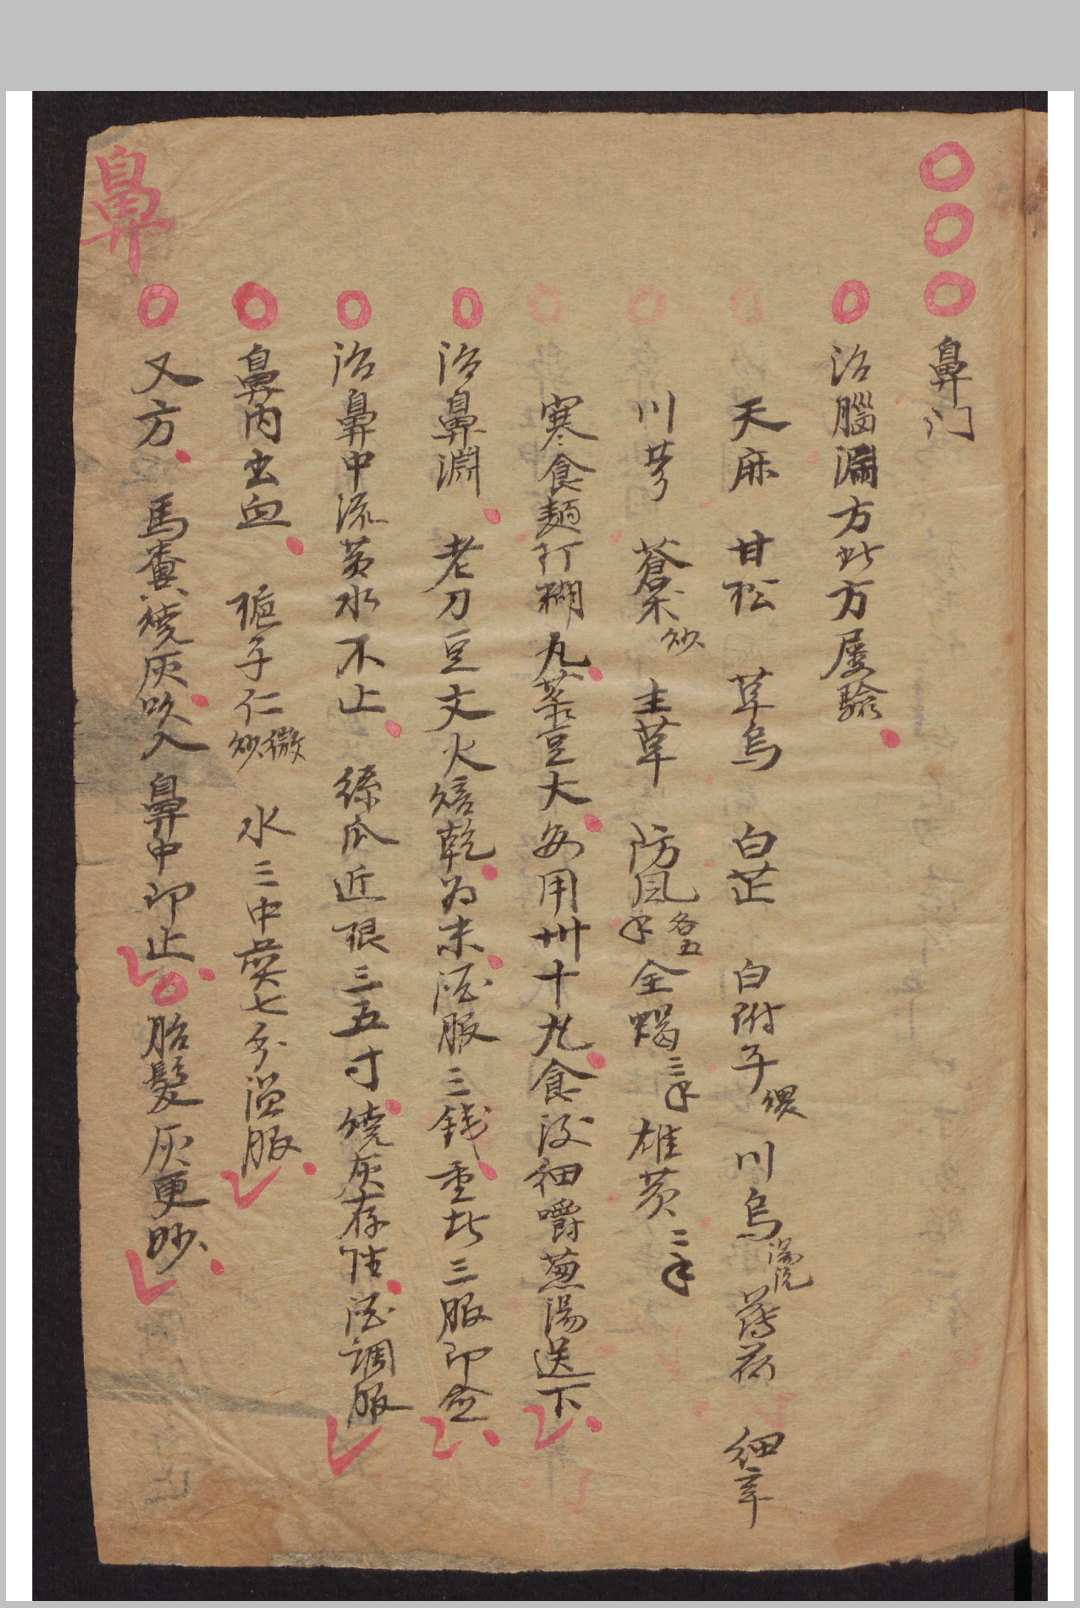 鼻门
治腦漏方此方屡驗
天麻 甘松 草烏 白芷 白附子煨 川烏湯洗 薄荷 细辛
川芎 蒼术炒 主草 防風各五 全蝎三 雄黄二
寒食麺打糊丸菉豆大每用卅十丸食後细嚼葱湯送下
治鼻淵 老刀豆文火焙乾为末酒服三錢重此三服即愈
治鼻中流黄水不止 絲瓜近根三五寸燒灰存性酒調服
鼻内出血 梔子仁微炒 水三中煎七分温服
又方 馬糞燒灰吹入鼻中即止 胎髮灰更妙
鼻